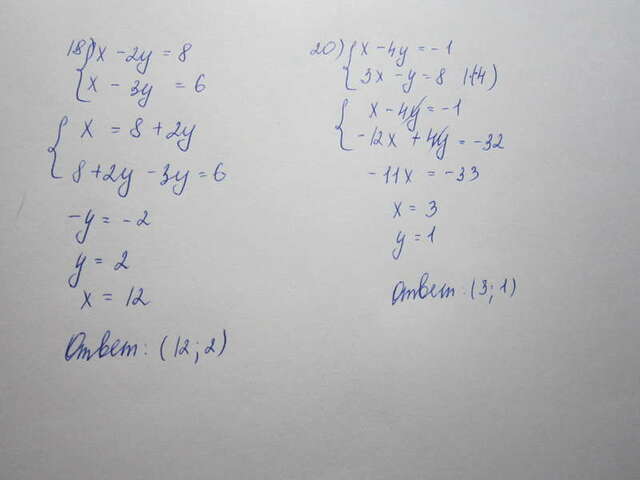 18) x - 2y = 8
x - 3y = 6
x = 8 + 2y
8 + 2y - 3y = 6
-y = -2
y = 2
x = 12
Ответ: (12; 2)
20) x - 4y = -1
3x - y = 8 |(-4)
x - 4y = -1
-12x + 4y = -32
-11x = -33
x = 3
y = 1
Ответ: (3; 1)